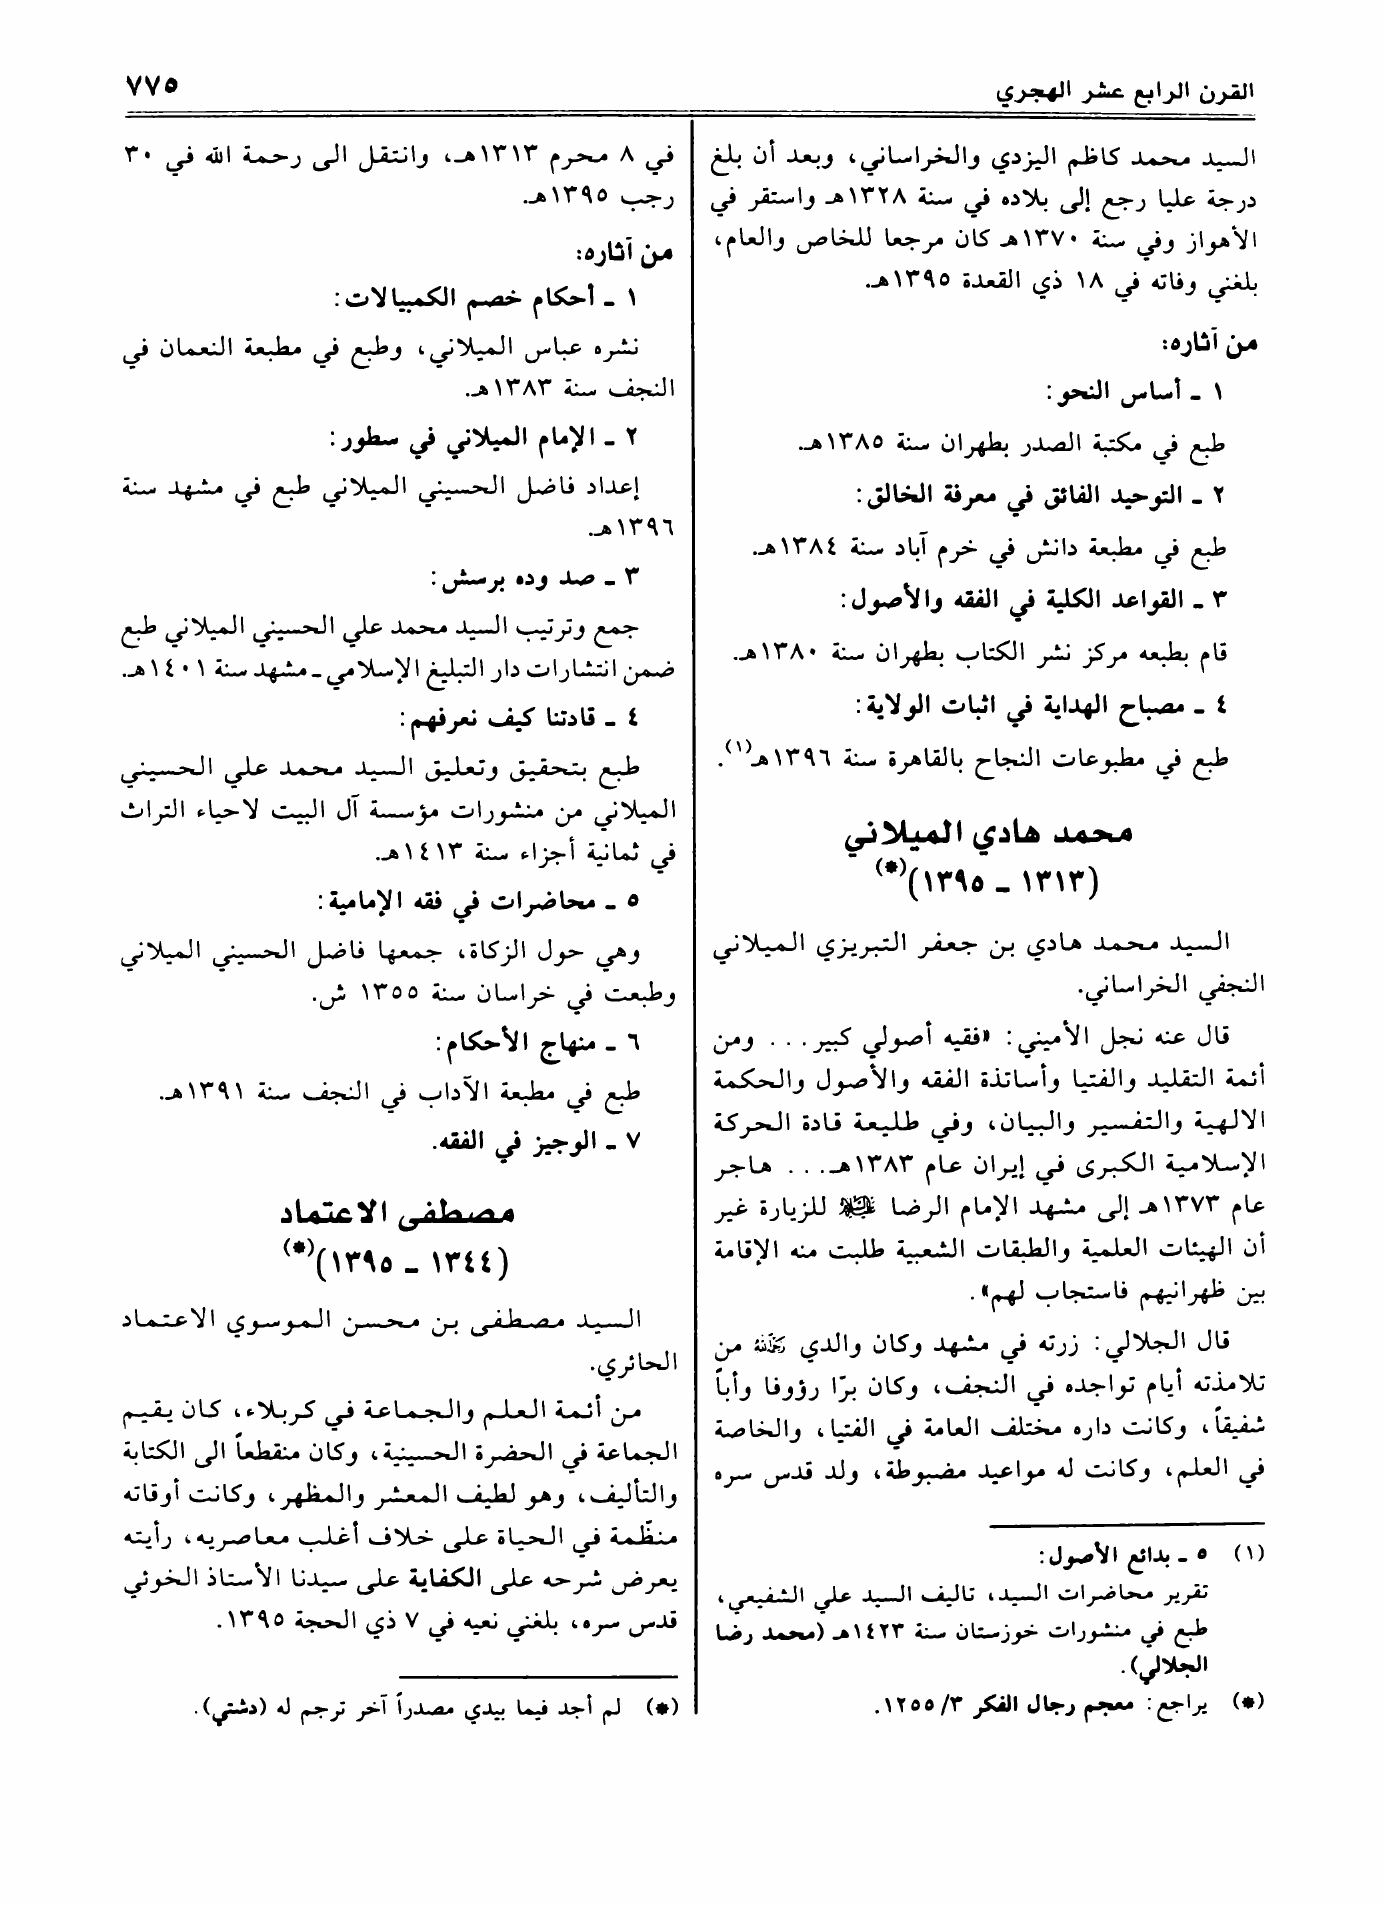 القرن الرابع عشر الهجري
٧٧٥
السيد محمد كاظم اليزدي والخراساني، وبعد أن بلغ
درجة عليا رجع إلى بلاده في سنة ١٣٢٨هـ واستقر في
الأهواز وفي سنة ١٣٧٠هـ كان مرجعا للخاص والعام،
بلغني وفاته في ١٨ ذي القعدة ١٣٩٥هـ.
من آثاره:
١ ـ أساس النحو:
طبع في مكتبة الصدر بطهران سنة ١٣٨٥هـ.
٢ ـ التوحيد الفائق في معرفة الخالق:
طبع في مطبعة دانش في خرم آباد سنة ١٣٨٤هـ.
٣ ـ القواعد الكلية في الفقه والأصول:
قام بطبعه مركز نشر الكتاب بطهران سنة ١٣٨٠هـ.
٤ ـ مصباح الهداية في اثبات الولاية:
طبع في مطبوعات النجاح بالقاهرة سنة ١٣٩٦هـ(١).
محمد هادي الميلاني
(١٣١٣ ـ ١٣٩٥)(*)
السيد محمد هادي بن جعفر التبريزي الميلاني
النجفي الخراساني.
قال عنه نجل الأميني: «فقيه أصولي كبير... ومن
أئمة التقليد والفتيا وأساتذة الفقه والأصول والحكمة
الالهية والتفسير والبيان، وفي طليعة قادة الحركة
الإسلامية الكبرى في إيران عام ١٣٨٣هـ... هاجر
عام ١٣٧٣هـ إلى مشهد الإمام الرضا عليه السلام للزيارة غير
أن الهيئات العلمية والطبقات الشعبية طلبت منه الإقامة
بين ظهرانيهم فاستجاب لهم».
قال الجلالي: زرته في مشهد وكان والدي رحمه الله من
تلامذته أيام تواجده في النجف، وكان برّا رؤوفا وأباً
شفيقاً، وكانت داره مختلف العامة في الفتيا، والخاصة
في العلم، وكانت له مواعيد مضبوطة، ولد قدس سره
(١) ٥ ـ بدائع الأصول:
تقرير محاضرات السيد، تاليف السيد علي الشفيعي،
طبع في منشورات خوزستان سنة ١٤٢٣هـ (محمد رضا
الجلالي).
(*) يراجع: معجم رجال الفكر ٣/ ١٢٥٥.
في ٨ محرم ١٣١٣هـ، وانتقل الى رحمة الله في ٣٠
رجب ١٣٩٥هـ.
من آثاره:
١ ـ أحكام خصم الكمبيالات:
نشره عباس الميلاني، وطبع في مطبعة النعمان في
النجف سنة ١٣٨٣هـ.
٢ ـ الإمام الميلاني في سطور:
إعداد فاضل الحسيني الميلاني طبع في مشهد سنة
١٣٩٦هـ.
٣ ـ صد وده برسش:
جمع وترتيب السيد محمد علي الحسيني الميلاني طبع
ضمن انتشارات دار التبليغ الإسلامي ـ مشهد سنة ١٤٠١هـ.
٤ ـ قادتنا كيف نعرفهم:
طبع بتحقيق وتعليق السيد محمد علي الحسيني
الميلاني من منشورات مؤسسة آل البيت لاحياء التراث
في ثمانية أجزاء سنة ١٤١٣هـ.
٥ ـ محاضرات في فقه الإمامية:
وهي حول الزكاة، جمعها فاضل الحسيني الميلاني
وطبعت في خراسان سنة ١٣٥٥ ش.
٦ ـ منهاج الأحكام:
طبع في مطبعة الآداب في النجف سنة ١٣٩١هـ.
٧ ـ الوجيز في الفقه.
مصطفى الاعتماد
(١٣٤٤ ـ ١٣٩٥)(*)
السيد مصطفى بن محسن الموسوي الاعتماد
الحائري.
من أئمة العلم والجماعة في كربلاء، كان يقيم
الجماعة في الحضرة الحسينية، وكان منقطعاً الى الكتابة
والتأليف، وهو لطيف المعشر والمظهر، وكانت أوقاته
منظّمة في الحياة على خلاف أغلب معاصريه، رأيته
يعرض شرحه على الكفاية على سيدنا الأستاذ الخوئي
قدس سره، بلغني نعيه في ٧ ذي الحجة ١٣٩٥.
(*) لم أجد فيما بيدي مصدراً آخر ترجم له (دشتي).